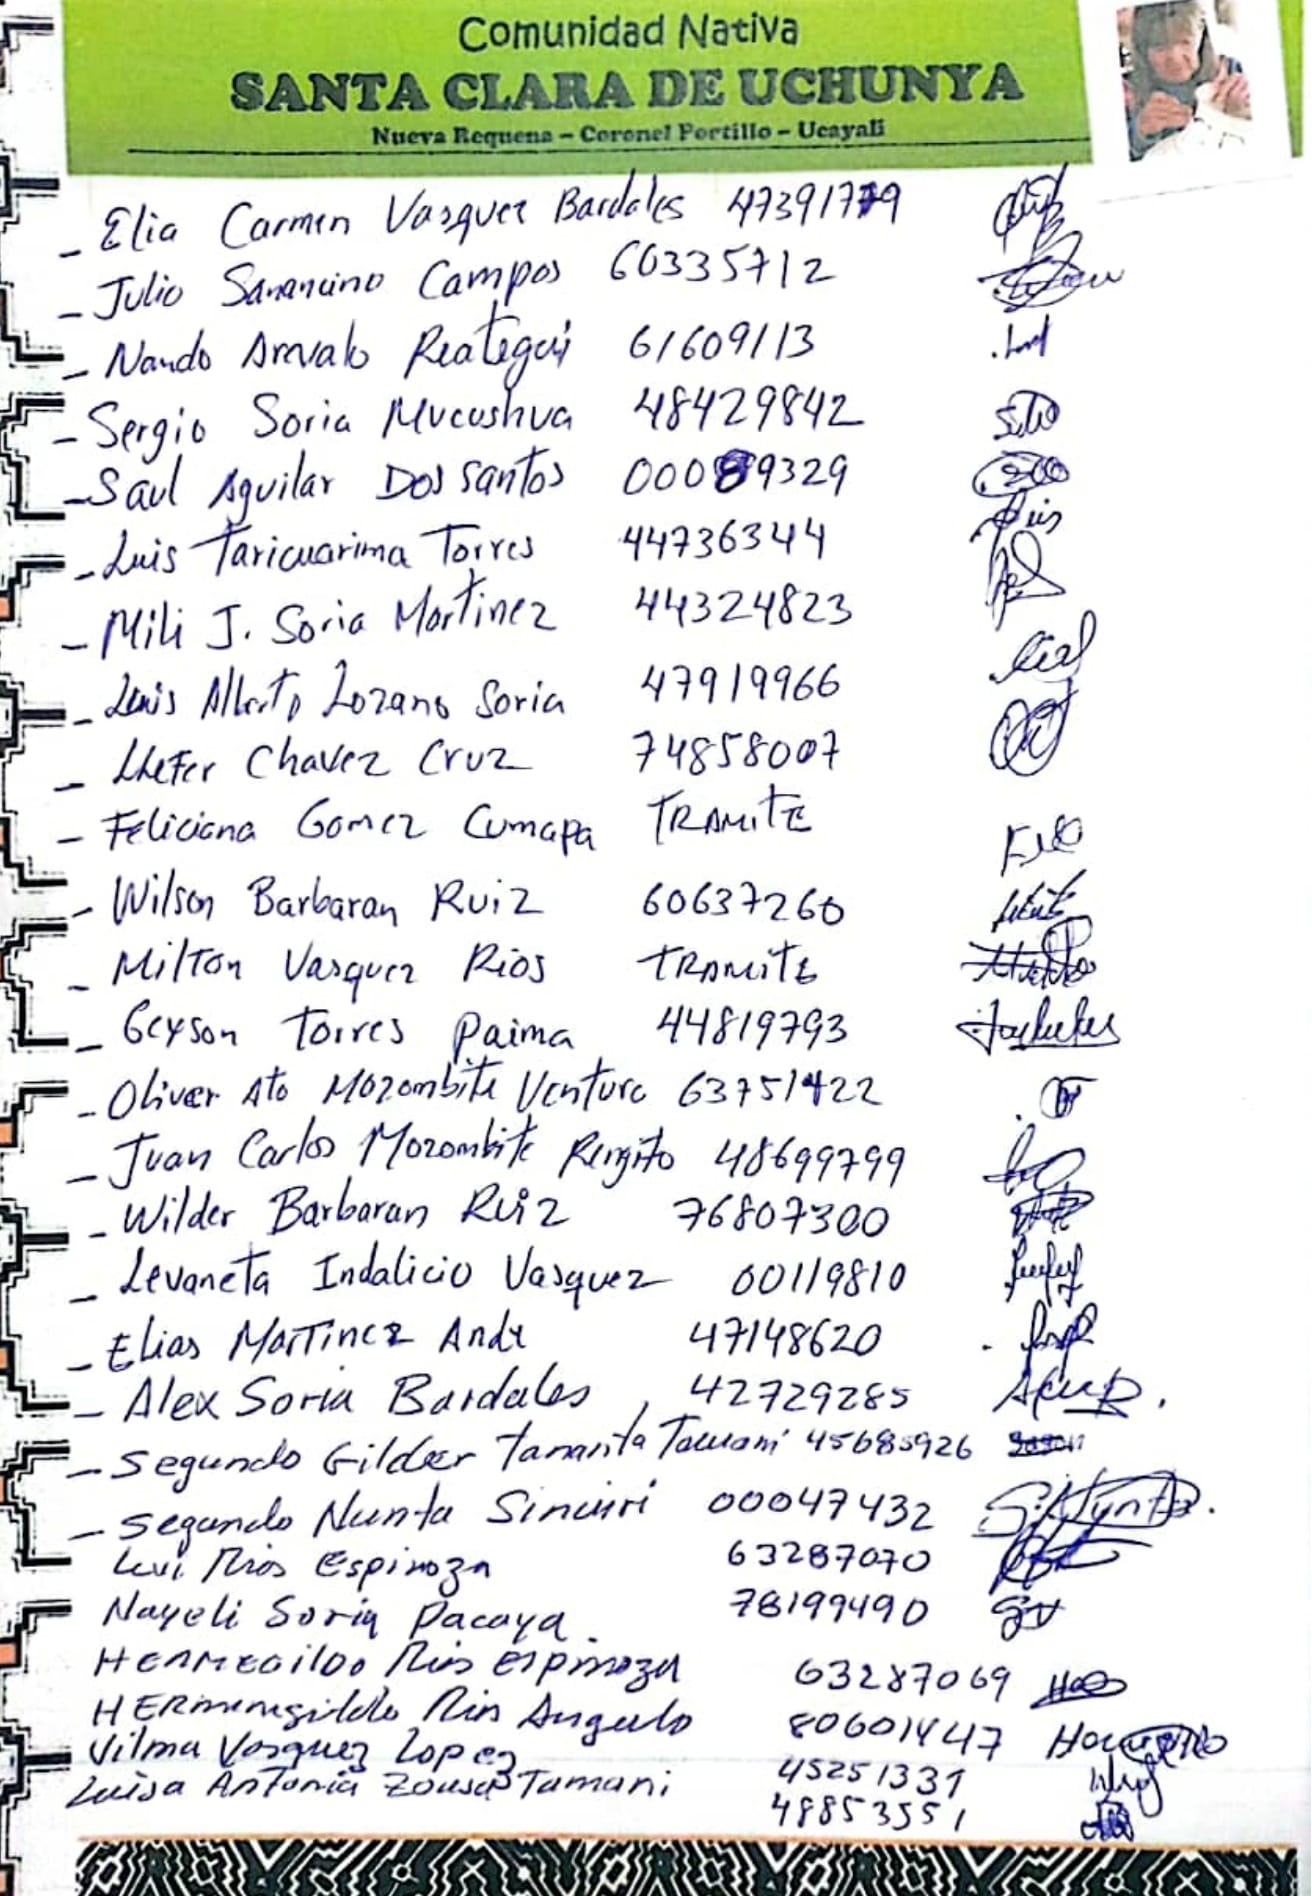 Comunidad Nativa
SANTA CLARA DE UCHUNYA
Nueva Requena – Coronel Portillo – Ucayali
- Elia Carmen Vasquez Bardales 47391779
- Julio Campos 60335712
- Nando Arevalo Reategui 61609113
- Sergio Soria Mucushua 48429842
- Saul Aguilar Dos santos 00089329
- Luis Taricuarima Torres 44736344
- Mili J. Soria Martinez 44324823
- Luis Alberto Lozano Soria 47919966
- Chavez Cruz 74858007
- Feliciana Gomez Cumapa TRAMITE
- Wilson Barbaran Ruiz 60637260
- Milton Vasquez Rios TRAMITE
- Geyson Torres Paima 44819793
- Oliver Ato Mozombite Ventura 63751422
- Juan Carlos Mozombite Rengito 48699799
- Wilder Barbaran Ruiz 76807300
- Levaneta Indalicio Vasquez 00119810
- Elias Martinez Andi 47148620
- Alex Soria Bardales, 42729285
- Segundo Gilder Tananta 45685926
- Segundo Nunta Sinuiri 00047432
Levi Rios Espinoza 63287070
Nayeli Soria Pacaya. 78199490
Rios Espinoza 63287069
Rios Angulo 80601447
Vilma Vasquez Lopez 45251331
Luisa Antonia Tamani 48853551